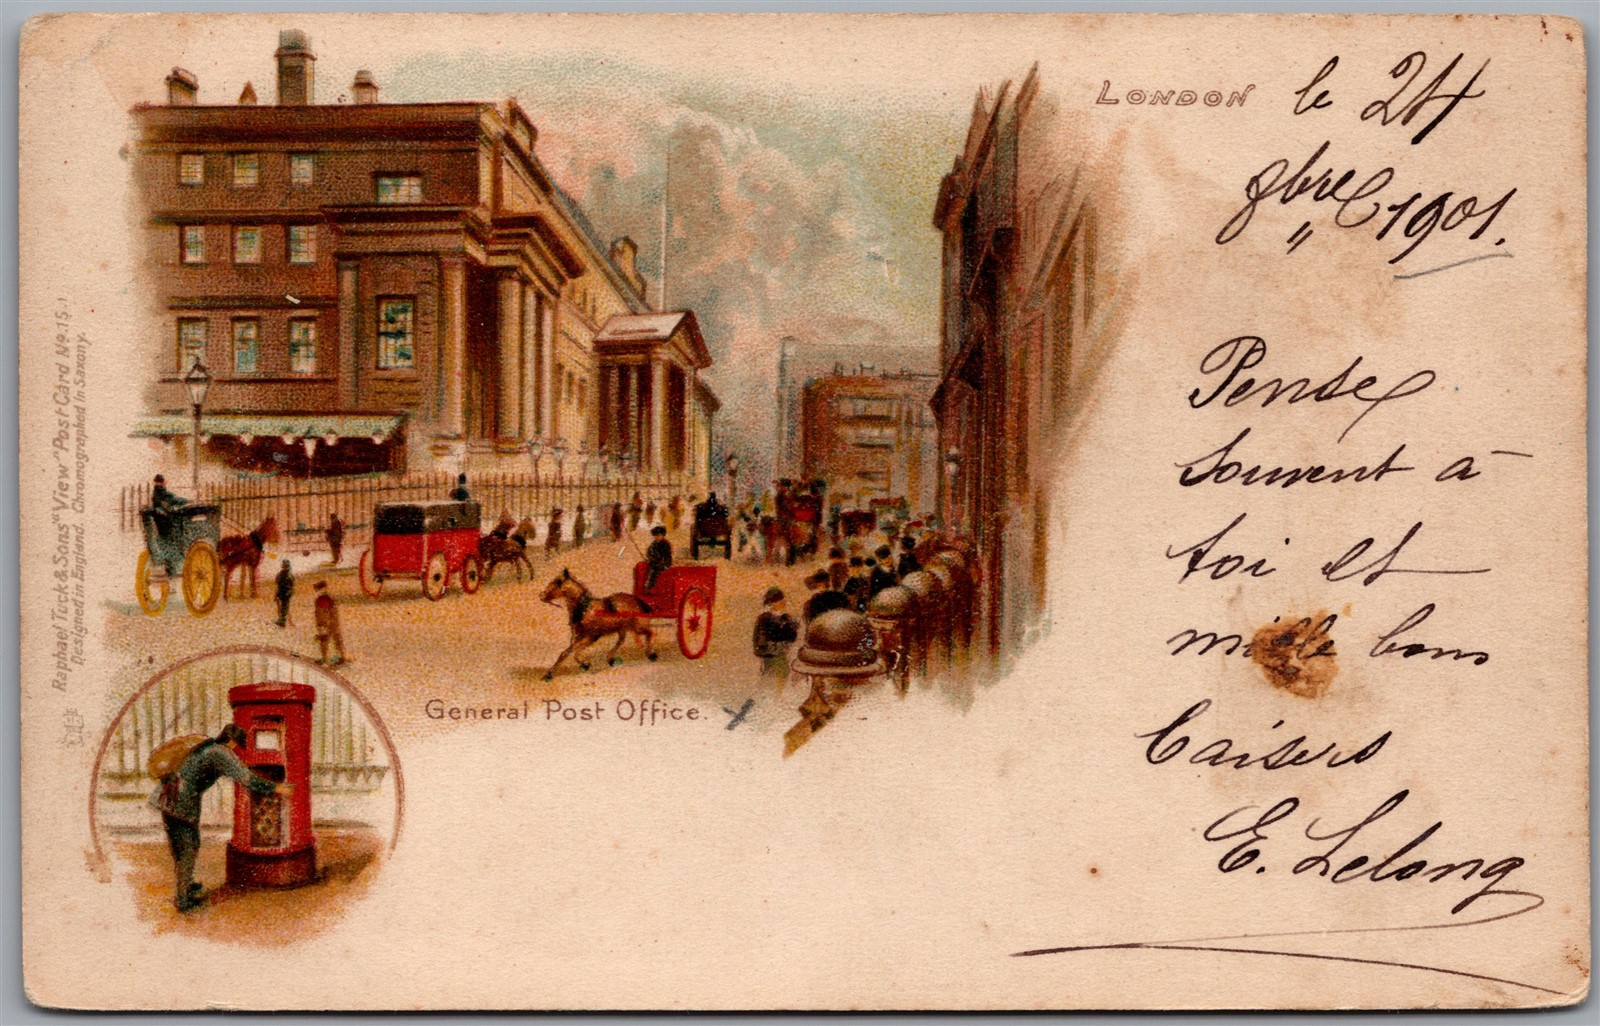 LONDON le 24
8bre 1901.
Pense
souvent à
toi et
mille bons
baisers
E. Lelong
General Post Office.
Raphael Tuck & Sons' "View" Post Card No. 15.
Designed in England. Chromographed in Saxony.